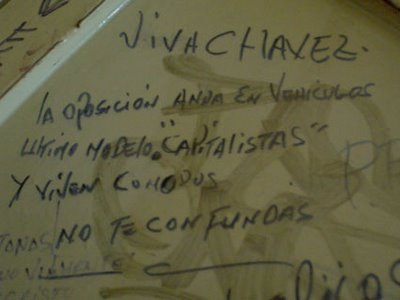 VIVA CHAVEZ.
LA OPOSICIÓN ANDA EN VEHICULOS
ULTIMO MODELO. "CAPITALISTAS"
Y VIVEN COMODOS
NO TE CONFUNDAS